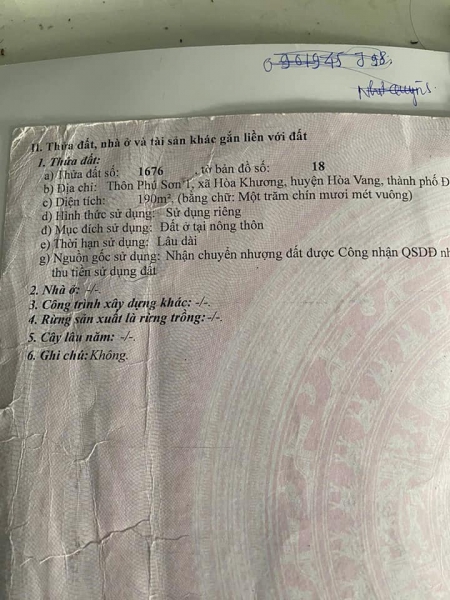 II. Thửa đất, nhà ở và tài sản khác gắn liền với đất
1. Thửa đất:
a) Thửa đất số: 1676 , tờ bản đồ số: 18
b) Địa chỉ: Thôn Phú Sơn 1, xã Hòa Khương, huyện Hòa Vang, thành phố Đ
c) Diện tích: 190m², (bằng chữ: Một trăm chín mươi mét vuông)
d) Hình thức sử dụng: Sử dụng riêng
đ) Mục đích sử dụng: Đất ở tại nông thôn
e) Thời hạn sử dụng: Lâu dài
g) Nguồn gốc sử dụng: Nhận chuyển nhượng đất được Công nhận QSDĐ nh
thu tiền sử dụng đất
2. Nhà ở: -/-.
3. Công trình xây dựng khác: -/-.
4. Rừng sản xuất là rừng trồng: -/-.
5. Cây lâu năm: -/-.
6. Ghi chú: Không.